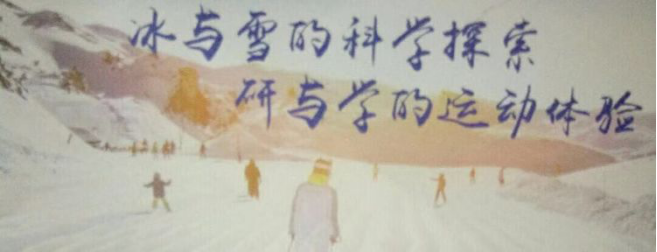 冰与雪的科学探索
研与学的运动体验